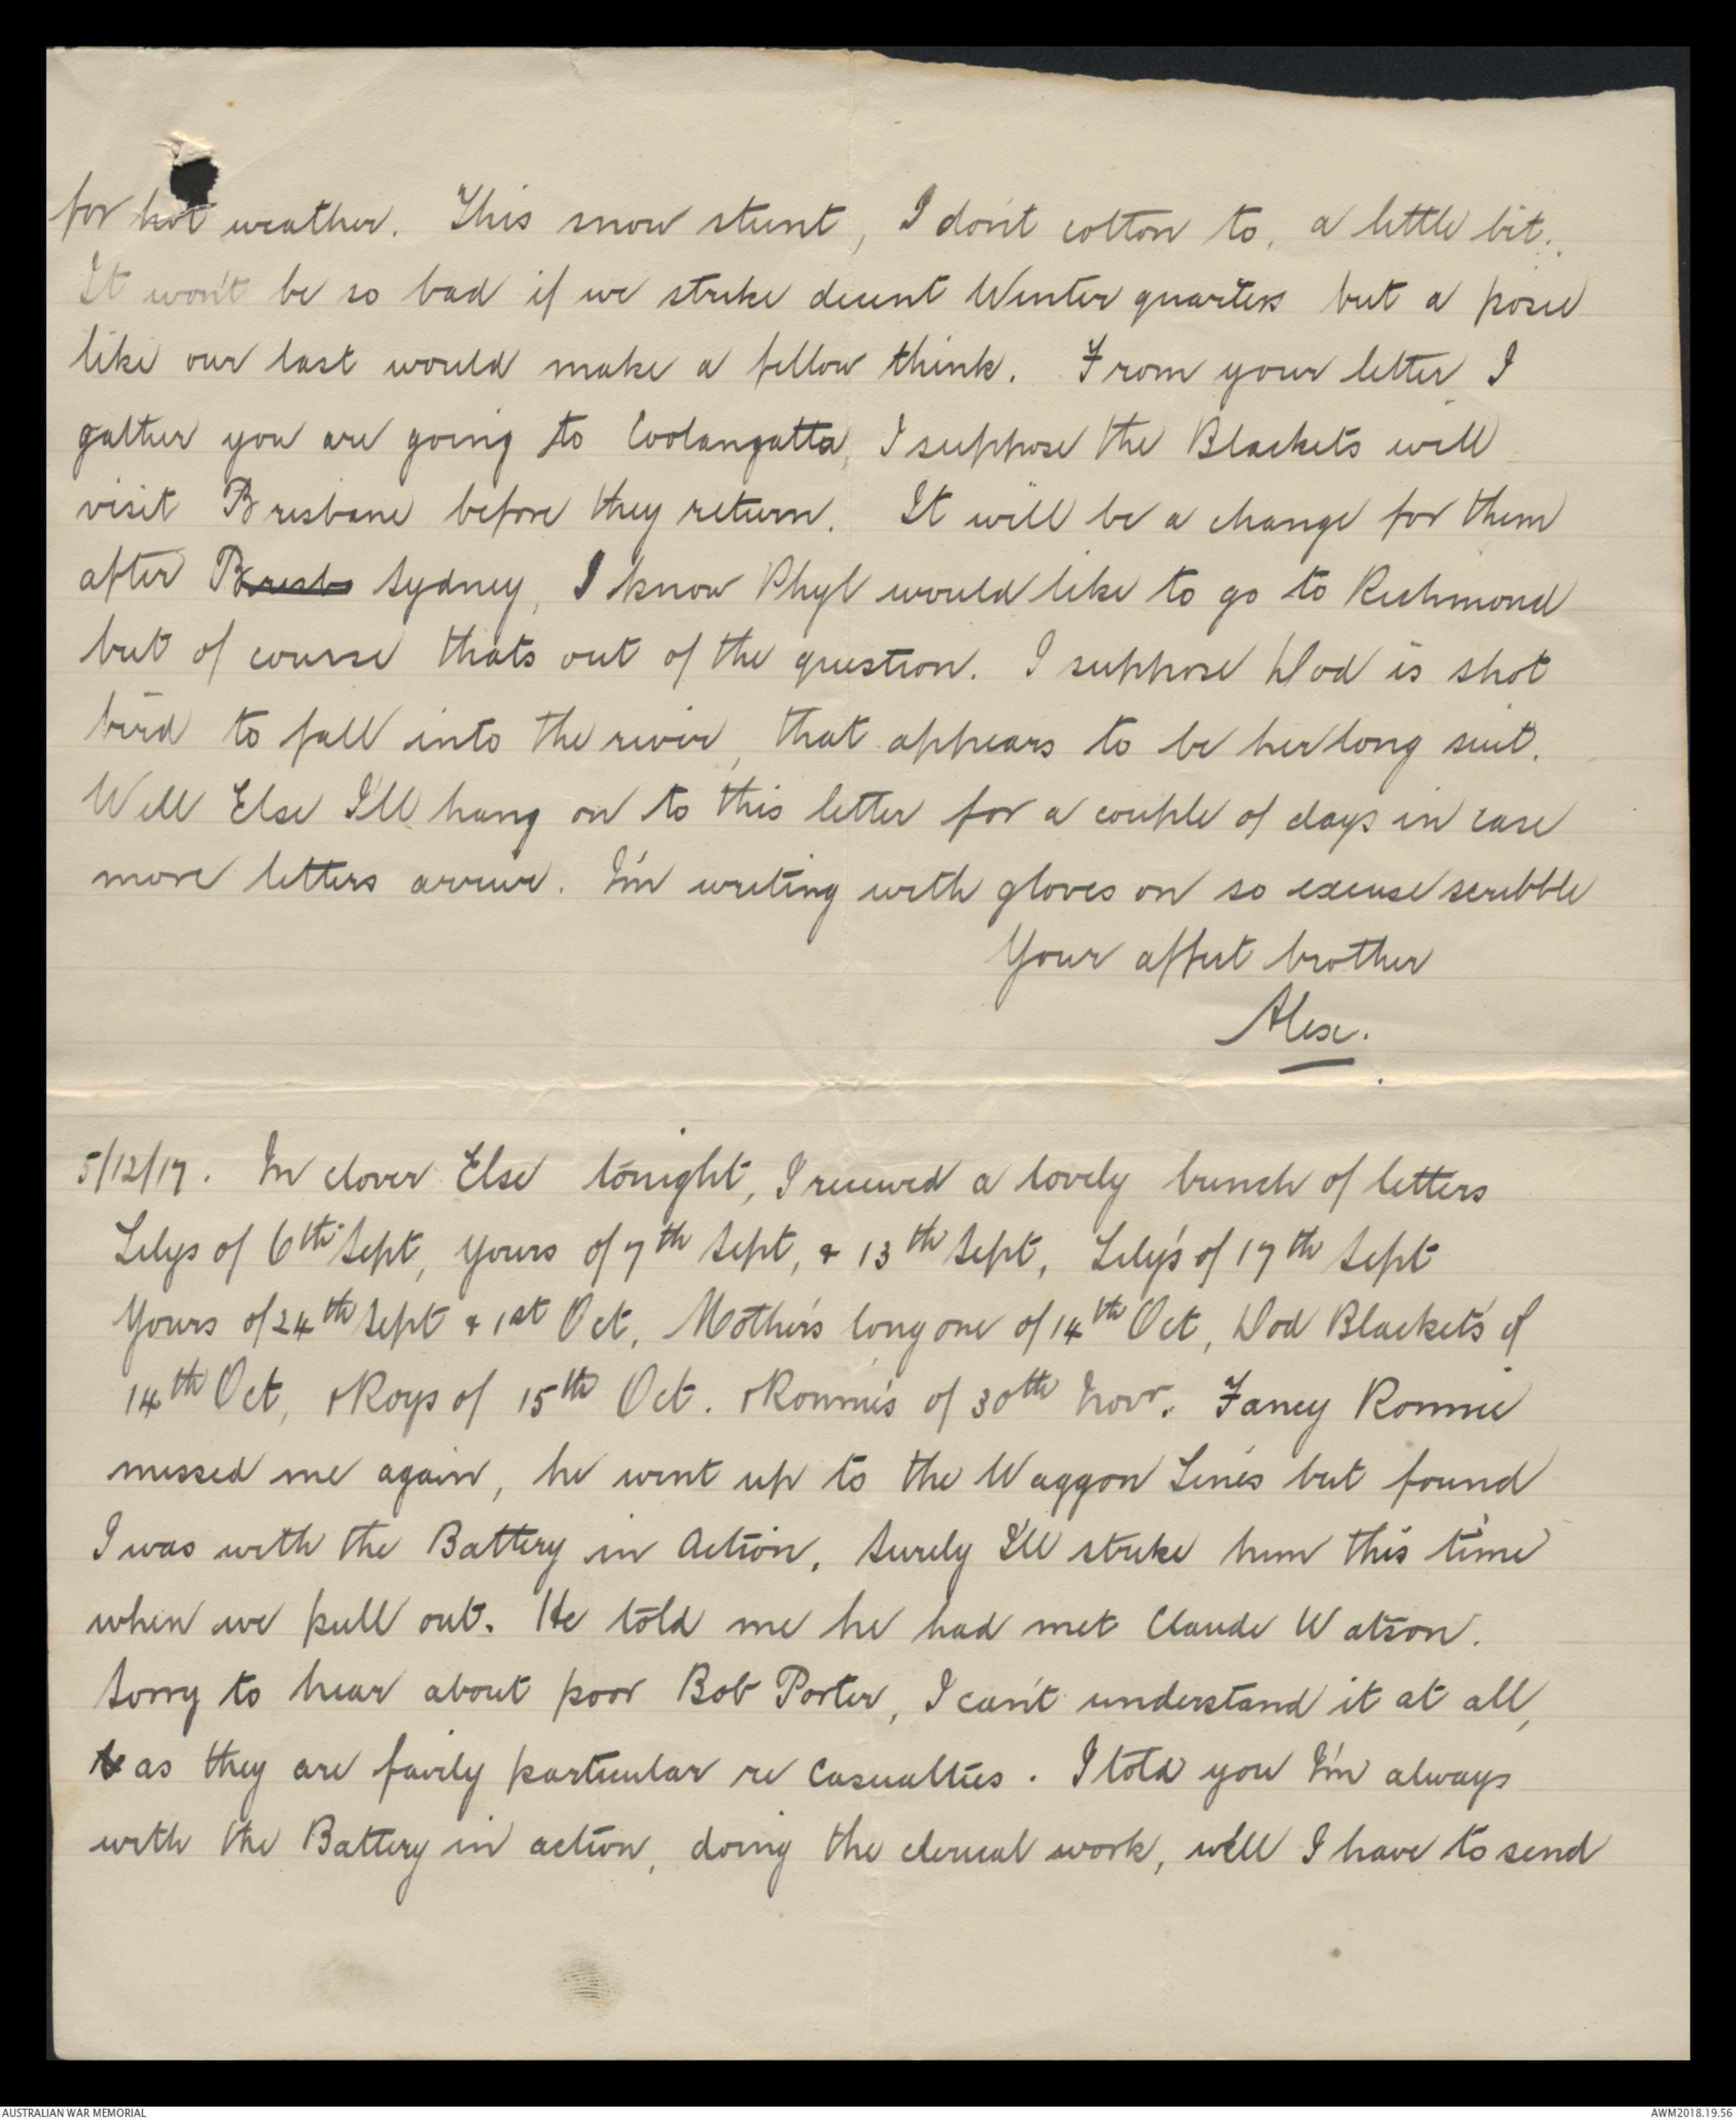 for hot weather. This snow stunt, I don't cotton to, a little bit.
It won't be so bad if we strike decent Winter quarters but a posie
like our last would make a fellow think. From your letter I
gather you are going to Coolangatta, I suppose the Blackets will
visit Brisbane before they return. It will be a change for them
after Brisb Sydney, I know Phyl would like to go to Richmond
but of course thats out of the question. I suppose Dod is shot
bird to fall into the river, that appears to be her long suit.
Well Else I'll hang on to this letter for a couple of days in case
more letters arrive. I'm writing with gloves on so excuse scribble
Your affect brother
Alex.
5/12/17. In clover Else tonight, I received a lovely bunch of letters
Lilys of 6th Sept, yours of 7th Sept, & 13th Sept, Lily's of 17th Sept
Yours of 24th Sept & 1st Oct, Mother's long one of 14th Oct, Dod Blacket's of
14th Oct, & Roys of 15th Oct. & Ronnie's of 30th Novr. Fancy Ronnie
missed me again, he went up to the Waggon Lines but found
I was with the Battery in Action. Surely I'll strike him this time
when we pull out. He told me he had met Claude Watson.
Sorry to hear about poor Bob Porter, I can't understand it at all,
as they are fairly particular re Casualties. I told you I'm always
with the Battery in action, doing the clerical work, well I have to send
AUSTRALIAN WAR MEMORIAL
AWM2018.19.56